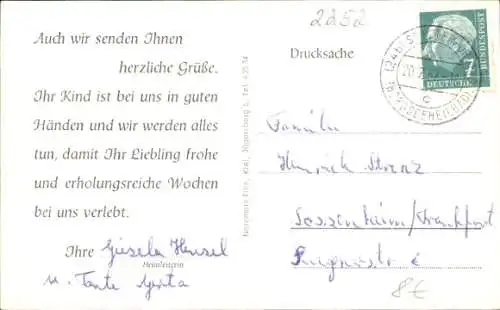 2252
Auch wir senden Ihnen
herzliche Grüße.
Ihr Kind ist bei uns in guten
Händen und wir werden alles
tun, damit Ihr Liebling frohe
und erholungsreiche Wochen
bei uns verlebt.
Ihre Gisela Hensel
Heimleiterin
u. Tante
Drucksache
7
DEUTSCHE
BUNDESPOST
(24b) ST. PETER
Familie
Heinrich
Sossenheim/Frankfurt
8€